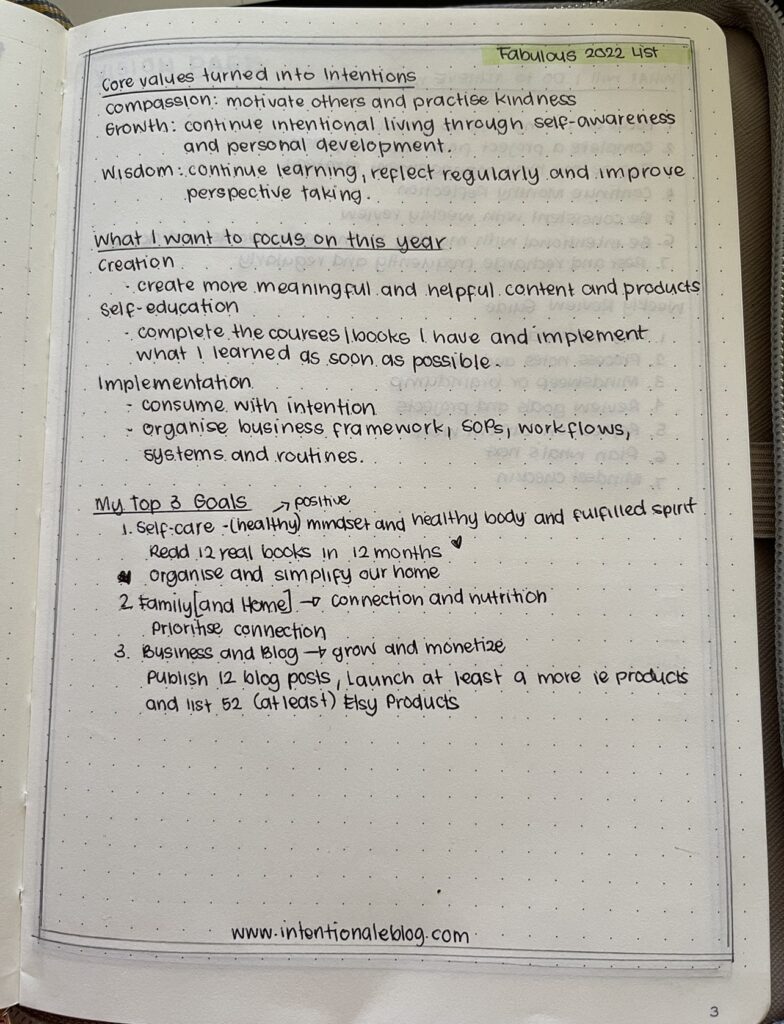 Fabulous 2022 List
Core values turned into Intentions
Compassion: motivate others and practise kindness
Growth: continue intentional living through self-awareness
and personal development.
Wisdom: continue learning, reflect regularly and improve
perspective taking.
What I want to focus on this year
Creation
- create more meaningful and helpful content and products
Self-education
- complete the courses/books I have and implement
what I learned as soon as possible.
Implementation
- consume with intention
- organise business framework, SOPs, workflows,
systems and routines.
My Top 3 Goals → positive
1. Self-care - (healthy) mindset and healthy body and fulfilled spirit
Read 12 real books in 12 months
organise and simplify our home
2. Family [and Home] → connection and nutrition
Prioritise connection
3. Business and Blog → grow and monetize
Publish 12 blog posts, Launch at least a more ie products
and list 52 (at least) Etsy Products
www.intentionaleblog.com
3